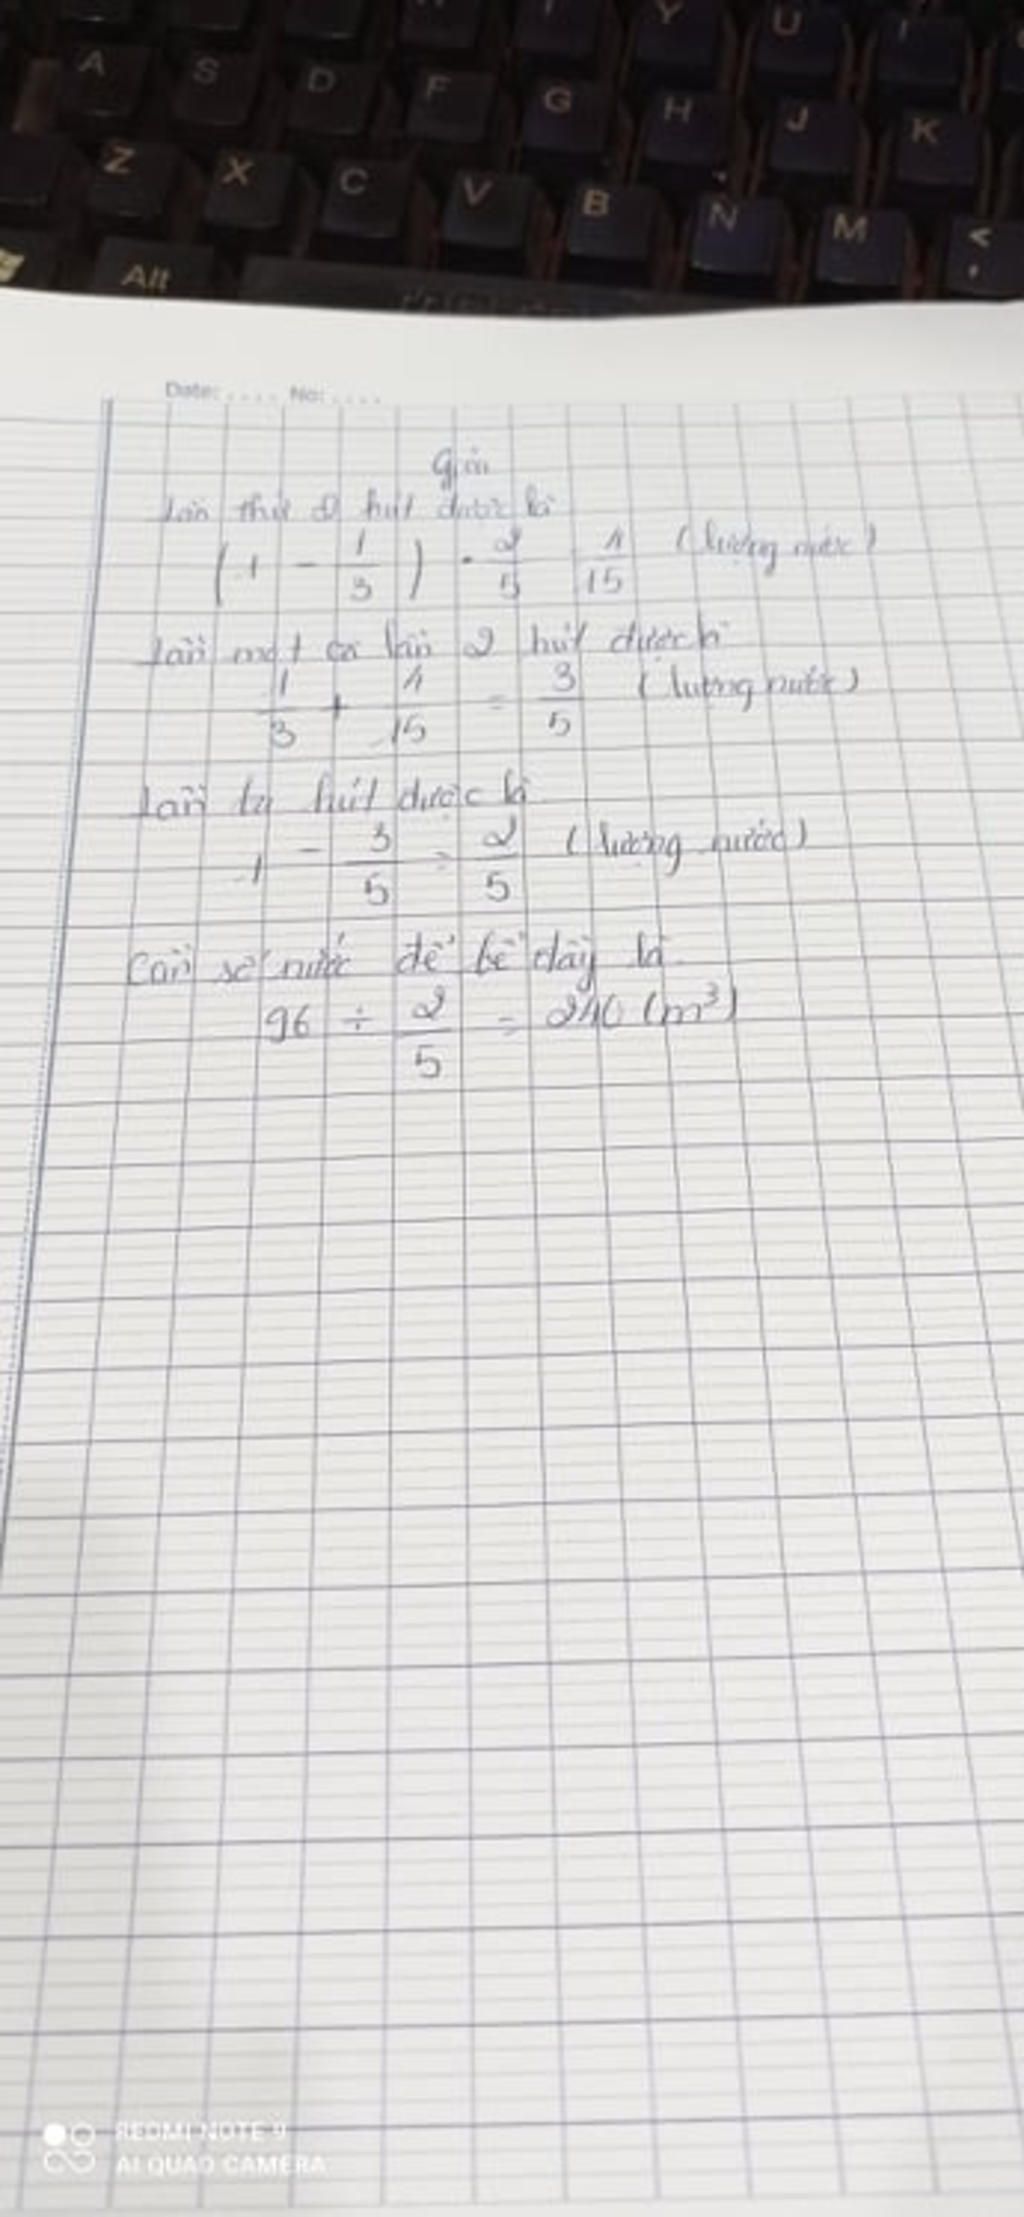 Y U I
A S D F G H J K
Z X C V B N M < ,
Alt
Date: .... No: ....
Giải
Lần thứ 2 hút được là
( 1 - 1/3 ) · 2/5 = 4/15 (lượng nước)
Lần một cả lần 2 hút được là
1/3 + 4/15 = 3/5 (lượng nước)
Lần ba hút được là
1 - 3/5 = 2/5 (lượng nước)
Cần số nước để bể đầy là
96 ÷ 2/5 = 240 (m³)
REDMI NOTE 9
AI QUAD CAMERA